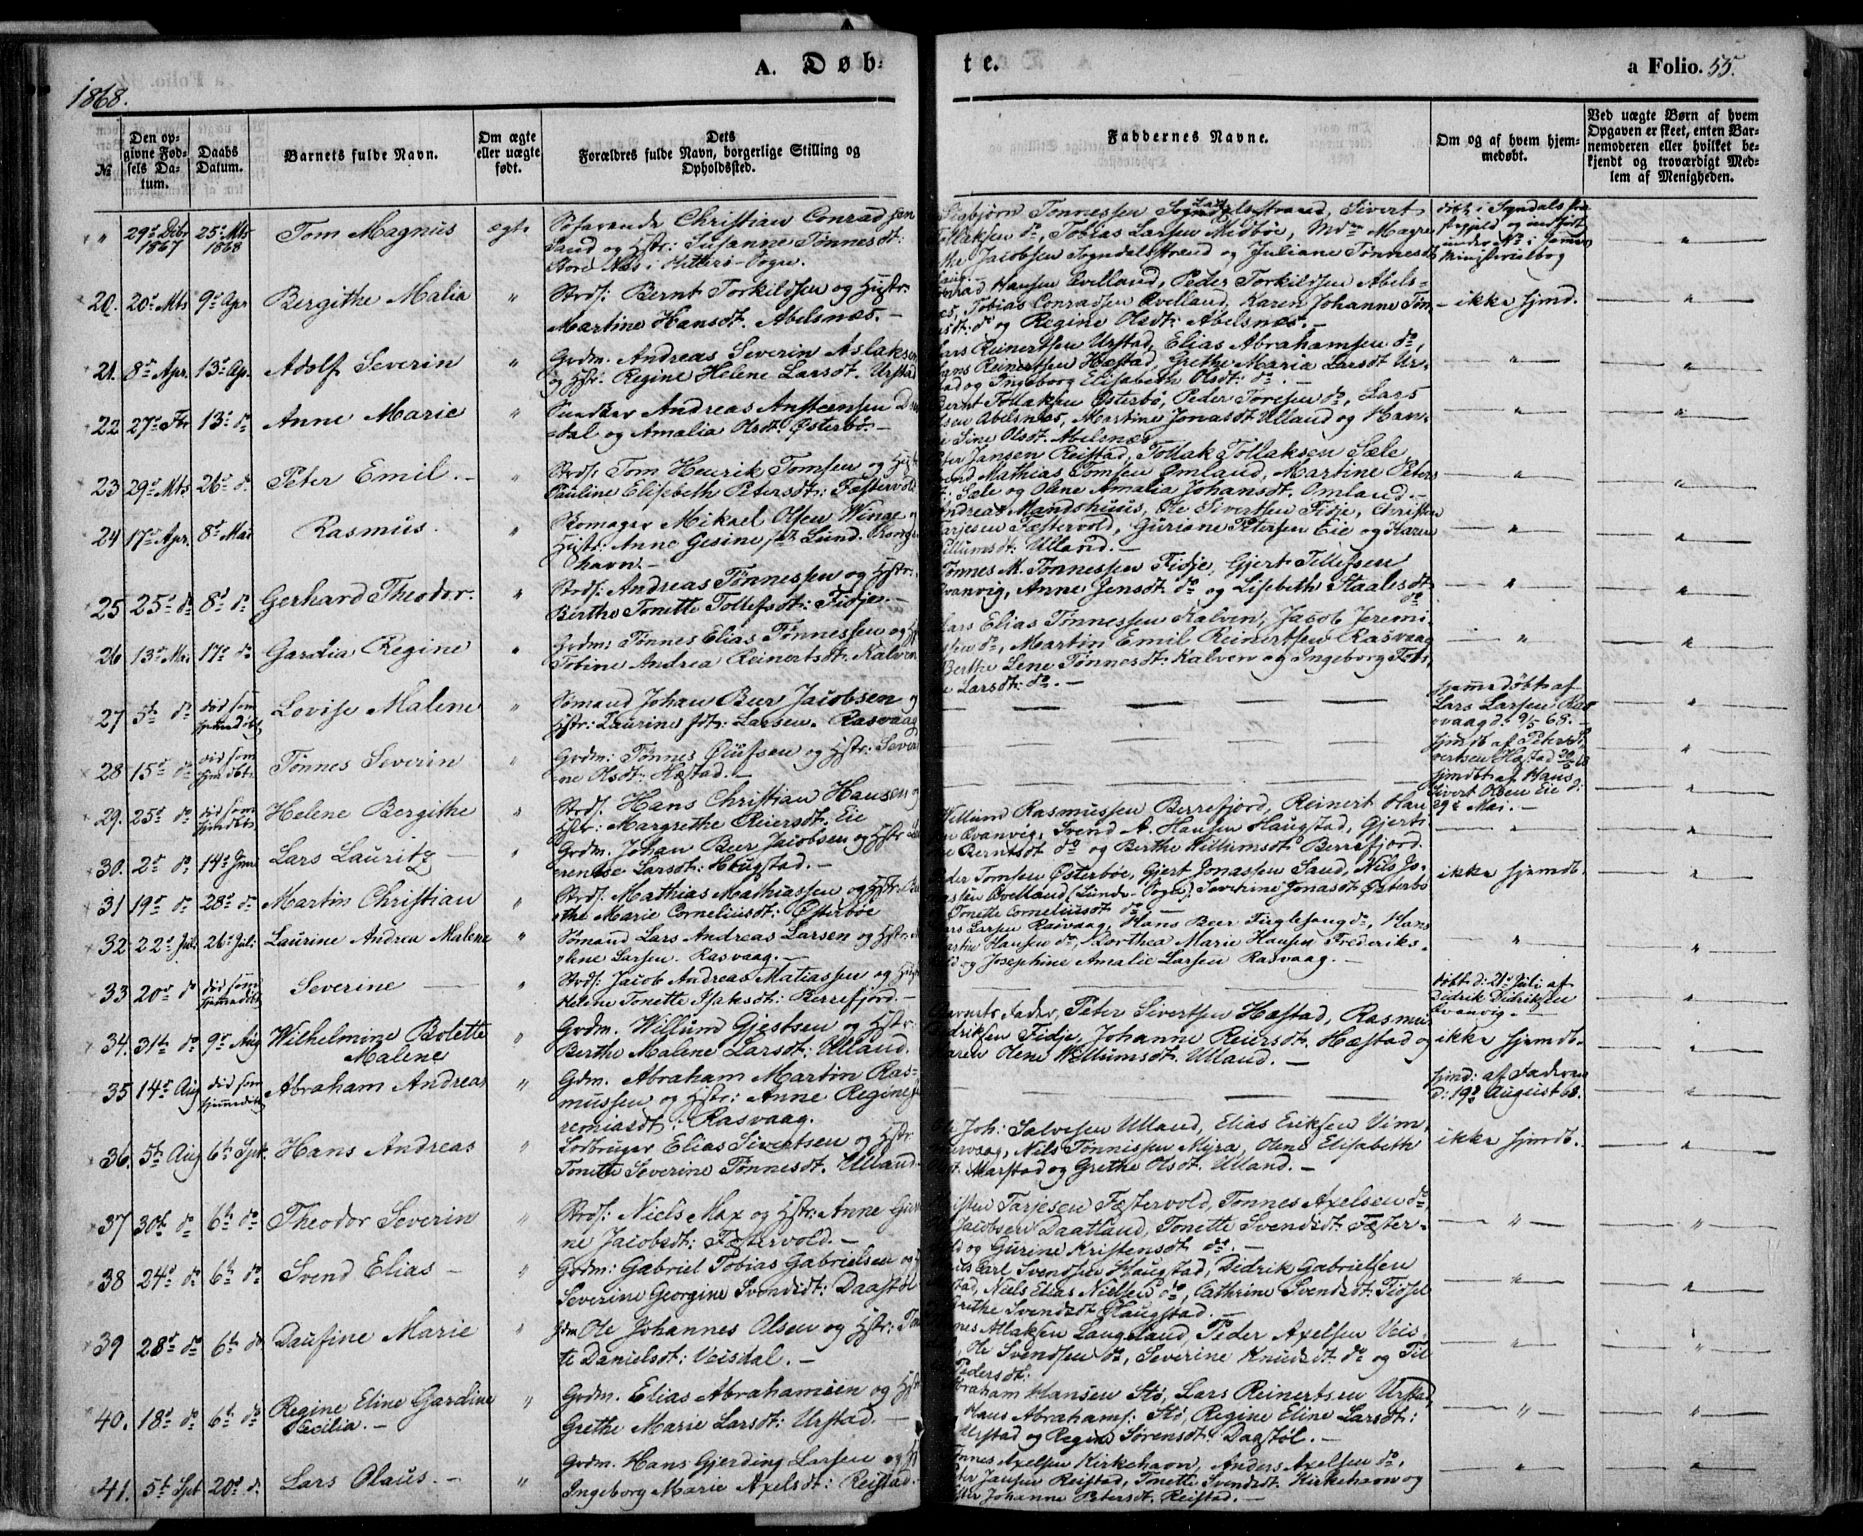 A. Døbte.
a Folio. 55.
1868.
№
Den opgivne Fødsels Datum.
Daabs Datum.
Barnets fulde Navn.
Om ægte eller uægte født.
Dets Forældres fulde Navn, borgerlige Stilling og Opholdssted.
Faddernes Navne.
Om og af hvem hjemmedøbt.
Ved uægte Børn af hvem Opgaven er skeet, enten Barnemoderen eller hvilket bekjendt og troværdigt Medlem af Menigheden.
" 29d Dbr 1867 25d Mts 1868 Tom Magnus ægte
Søfarende Christian Conradsen
Sand og Hstr: Susanne Tønnesdt:
Store Næs i Hitterø-Sogn.
Tønnessen Sogndalsstrand, Sivert
Tollaksen do, Tobias Larsen Midbøe, Mdm Magre
the Jacobsen Sogndalsstrand og Juliane Tønnesdt
20. 20d Mts 9d Apr Bergithe Malia "
Strds: Bernt Torkildsen og Hustr:
Martine Hansdt. Abelsnæs.-
Hansen Qvelland, Peder Torkildsen Abels-
Tobias Conradsen Qvelland, Karen Johanne Tøn-
do og Regine Olsdt: Abelsnæs.-
ikke hjmd.
21. 8d Apr. 13d Ap. Adolf Severin "
Grdm. Andreas Severin Aslaksen
og Hstr: Regine Helene Larsdt. Urstad
Lars Reinertsen Urstad, Elias Abrahamsen do,
Hans Reinertsen Hæstad, Grethe Maria Larsdt Ur-
stad og Ingeborg Elisabeth Olsdt: do.-
22 27d Fbr 13d do Anne Marie "
Andreas Anstensen
dal og Amalia Olsdt: Østerbø.-
Bernt Tollaksen Østerbø, Peder Toresen do, Lars
Olsen Abelsnæs, Martine Jonasdt Ulland og Han-
ne Sine Olsdt. Abelsnæs
23 29d Mts 26d d. Peter Emil.- "
Strds: Tom Henrik Tomsen og Hstr
Pauline Elisebeth Petersdt: Fæstervold
Jansen Reistad, Tollak Tollaksen Sæle
Svend Mathias Tomsen Omland, Martine Peters
Sæle og Olene Amalia Johansdt. Omland.-
24 17d Apr. 8d Mai Rasmus. "
Skomager Mikael Olsen Winge og
Hstr: Anne Gesine Lund. Konge
havn.-
Andreas Mandshuus, Ole Sivertsen Fidje, Christen
Tarjesen Fæstervold, Guriane Petersen Eie og Karen
Villumsdt: Ulland.-
25 25d do 8d do Gerhard Theodor. "
Strds: Andreas Tønnessen og Hstr:
Berthe Tonette Tollefsdt: Fidje.-
Tønnes M. Tønnessen Fidje, Gjert Tillefsen
Qvanvig, Anne Jensdt: do og Lisebeth Staalesdt
do
26 13d Mai 17d do Garalia Regine "
Grdm: Tønnes Elias Tønnessen og H
Tobine Andrea Reinertsdt. Kalven
Lars Elias Tønnessen Kalven, Jacob Jeremi-
do, Martin Emil Reinertsen Rasvaag
Berthe Lene Tønnesdt: Kalven og Ingeborg
Larsdt: do.-
27 5te do død som hjemmedøbt Lovise Malene "
Sømand Johan Beer Jacobsen og
Hstr: Taurine fdt: Larsen. Rasvaag
hjemmedøbt af
Lars Larsen Ras
vaag d. 9/5 68.-
28 15d do død som hjmdøbt Tønnes Severin
Grdm: Tønnes Olufsen og Hstr: Seve
ne Olsdt: Hæstad.-
hjmdb af Peter Si
vertsen Hæstad 20/5 68
29. 25d do død som hjemdøbt Helene Bergithe "
Strds: Hans Christian Hansen og
Hstr: Margrethe Reiersdt: Eie
hjmdbt af Hans
Sivert Olsen Eie d:
29d Mai.-
30. 2d do 14d Juni Lars Lauritz "
Grdm. Johan Beer Jacobsen og Hstr
erentse Larsdt: Haugstad.-
Willund Rasmussen Berrefjord, Reinert Han
Qvanvig, Svend A. Hansen Haugstad, Gjerti-
ne Berntsdt do og Berthe Willumsdt Berrefjord.
31 19d do 28d do Martin Christian "
Strds: Mathias Mathiassen og Hstr: Be
the Marie Corneliusdt: Østerbøe
Peder Tomsen Østerbøe, Gjert Jonassen Sand, Nils Jo-
Qvelland (Lunde-Sogn) Severine Jonasdt Østerbø
Tonette Corneliusdt do.-
ikke hjemdb.
32 22d Juli 26d Juli Laurine Andrea Malene "
Sømand Lars Andreas Larsen og Hstr:
olene Larsen. Rasvaag.-
Lars Larsen Rasvaag, Hans Beer Fuglesang do, Hans
Martin Hansen do, Dorthea Marie Hansen Frederiks-
og Josephine Amalie Larsen Rasvaag.-
33 20d do død som hjemmedøbt Severine "
Strds: Jacob Andreas Matiassen og Hstr
Helene Tonette Isaksdt: Berrefjord.-
døbt d: 21d Juli af
Didrik Didriksen
Qvanvig.-
34. 31te do 9d Aug Wilhelmine Bolette
Malene "
Grdm. Willund Gjertsen og Hstr:
Berthe Malene Larsdt: Ulland.
Barnets Fader, Peter Sivertsen Hæstad, Rasmus
Fidje, Johanne Reiersdt. Hæstad og
Karen Olene Willumsdt: Ulland.-
ikke hjemdb.
35 14d Aug død som hjemmedøbt Abraham Andreas "
Gdm. Abraham Martin Ras-
mussen og Hstr: Anne Regine Je
remiasdt: Rasvaag.
hjmd: af Faderen
d: 19d August 68.
36. 5te Aug 6te Spt. Hans Andreas "
Lodbruger Elias Sivertsen og Hstr
Tonette Severine Tønnesdt. Ulland-
Joh: Salvesen Ulland, Elias Eriksen Vim,
Nils Tønnissen Myra, Olene Elisabeth
Marstad og Grethe Olsdt. Ulland.-
ikke hjmdb.
37 30te do 6te do Theodor Severin "
Strds: Niels Max og Hstr: Anne Guri
ne Jacobsdt: Fæstervold.-
Tarjesen Fæstervold, Tønnes Axelsen do,
Jacobsen Daatland, Tonette Svendsdt Fæster-
og Gurine Kristensdt do.-
38 24d do 6te do Svend Elias- "
Grdm: Gabriel Tobias Gabrielsen og
Severine Georgine Svendsdt: Dagstøl
Carl Svendsen Haugstad, Didrik Gabrielsen
Niels Elias Nielsen do, Cathrine Svendsdt
Grethe Svendsdt Haugstad.-
39 28d do 6te do Daufine Marie "
Gdm Ole Johannes Olsen og Hstr: To
te Danielsdt: Veisdal.-
Atlaksen Laugeland, Peder Axelsen Veis-
Ole Svendsen do, Severine Knudsdt do og
Pedersdt:
40. 18d do 6te do Regine Eline Gardine
Cecilia.- "
Grdm. Elias Abrahamsen og Hstr
Grethe Marie Larsdt: Urstad.-
Abraham Hansen Stø, Lars Reinertsen Urstad,
Hans Abrahams: Stø, Regine Eline Larsdt:
Urstad og Regine Sørensdt: Dagstøl.-
41. 5te Spt 20d d. Lars Olaus.- "
Grdm. Hans Gjerding Larsen og H
Ingeborg Marie Axelsdt: Reistad.
Tønnes Axelsen Kirkehavn, Anders Axelsen do,
Peter Jansen Reistad, Tonette Svendsdt. Kirkehavn og
Johanne Petersdt. Reistad.-